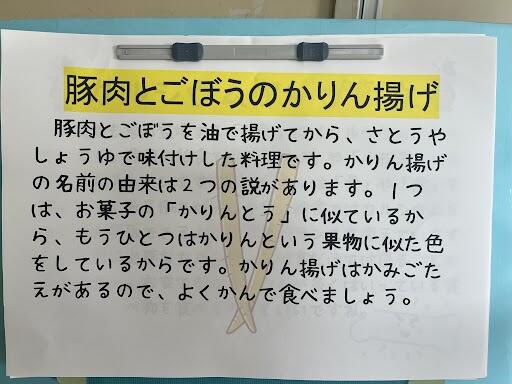 豚肉とごぼうのかりん揚げ
豚肉とごぼうを油で揚げてから、さとうや
しょうゆで味付けした料理です。かりん揚げ
の名前の由来は2つの説があります。1つ
は、お菓子の「かりんとう」に似ているか
ら、もうひとつはかりんという果物に似た色
をしているからです。かりん揚げはかみごた
えがあるので、よくかんで食べましょう。